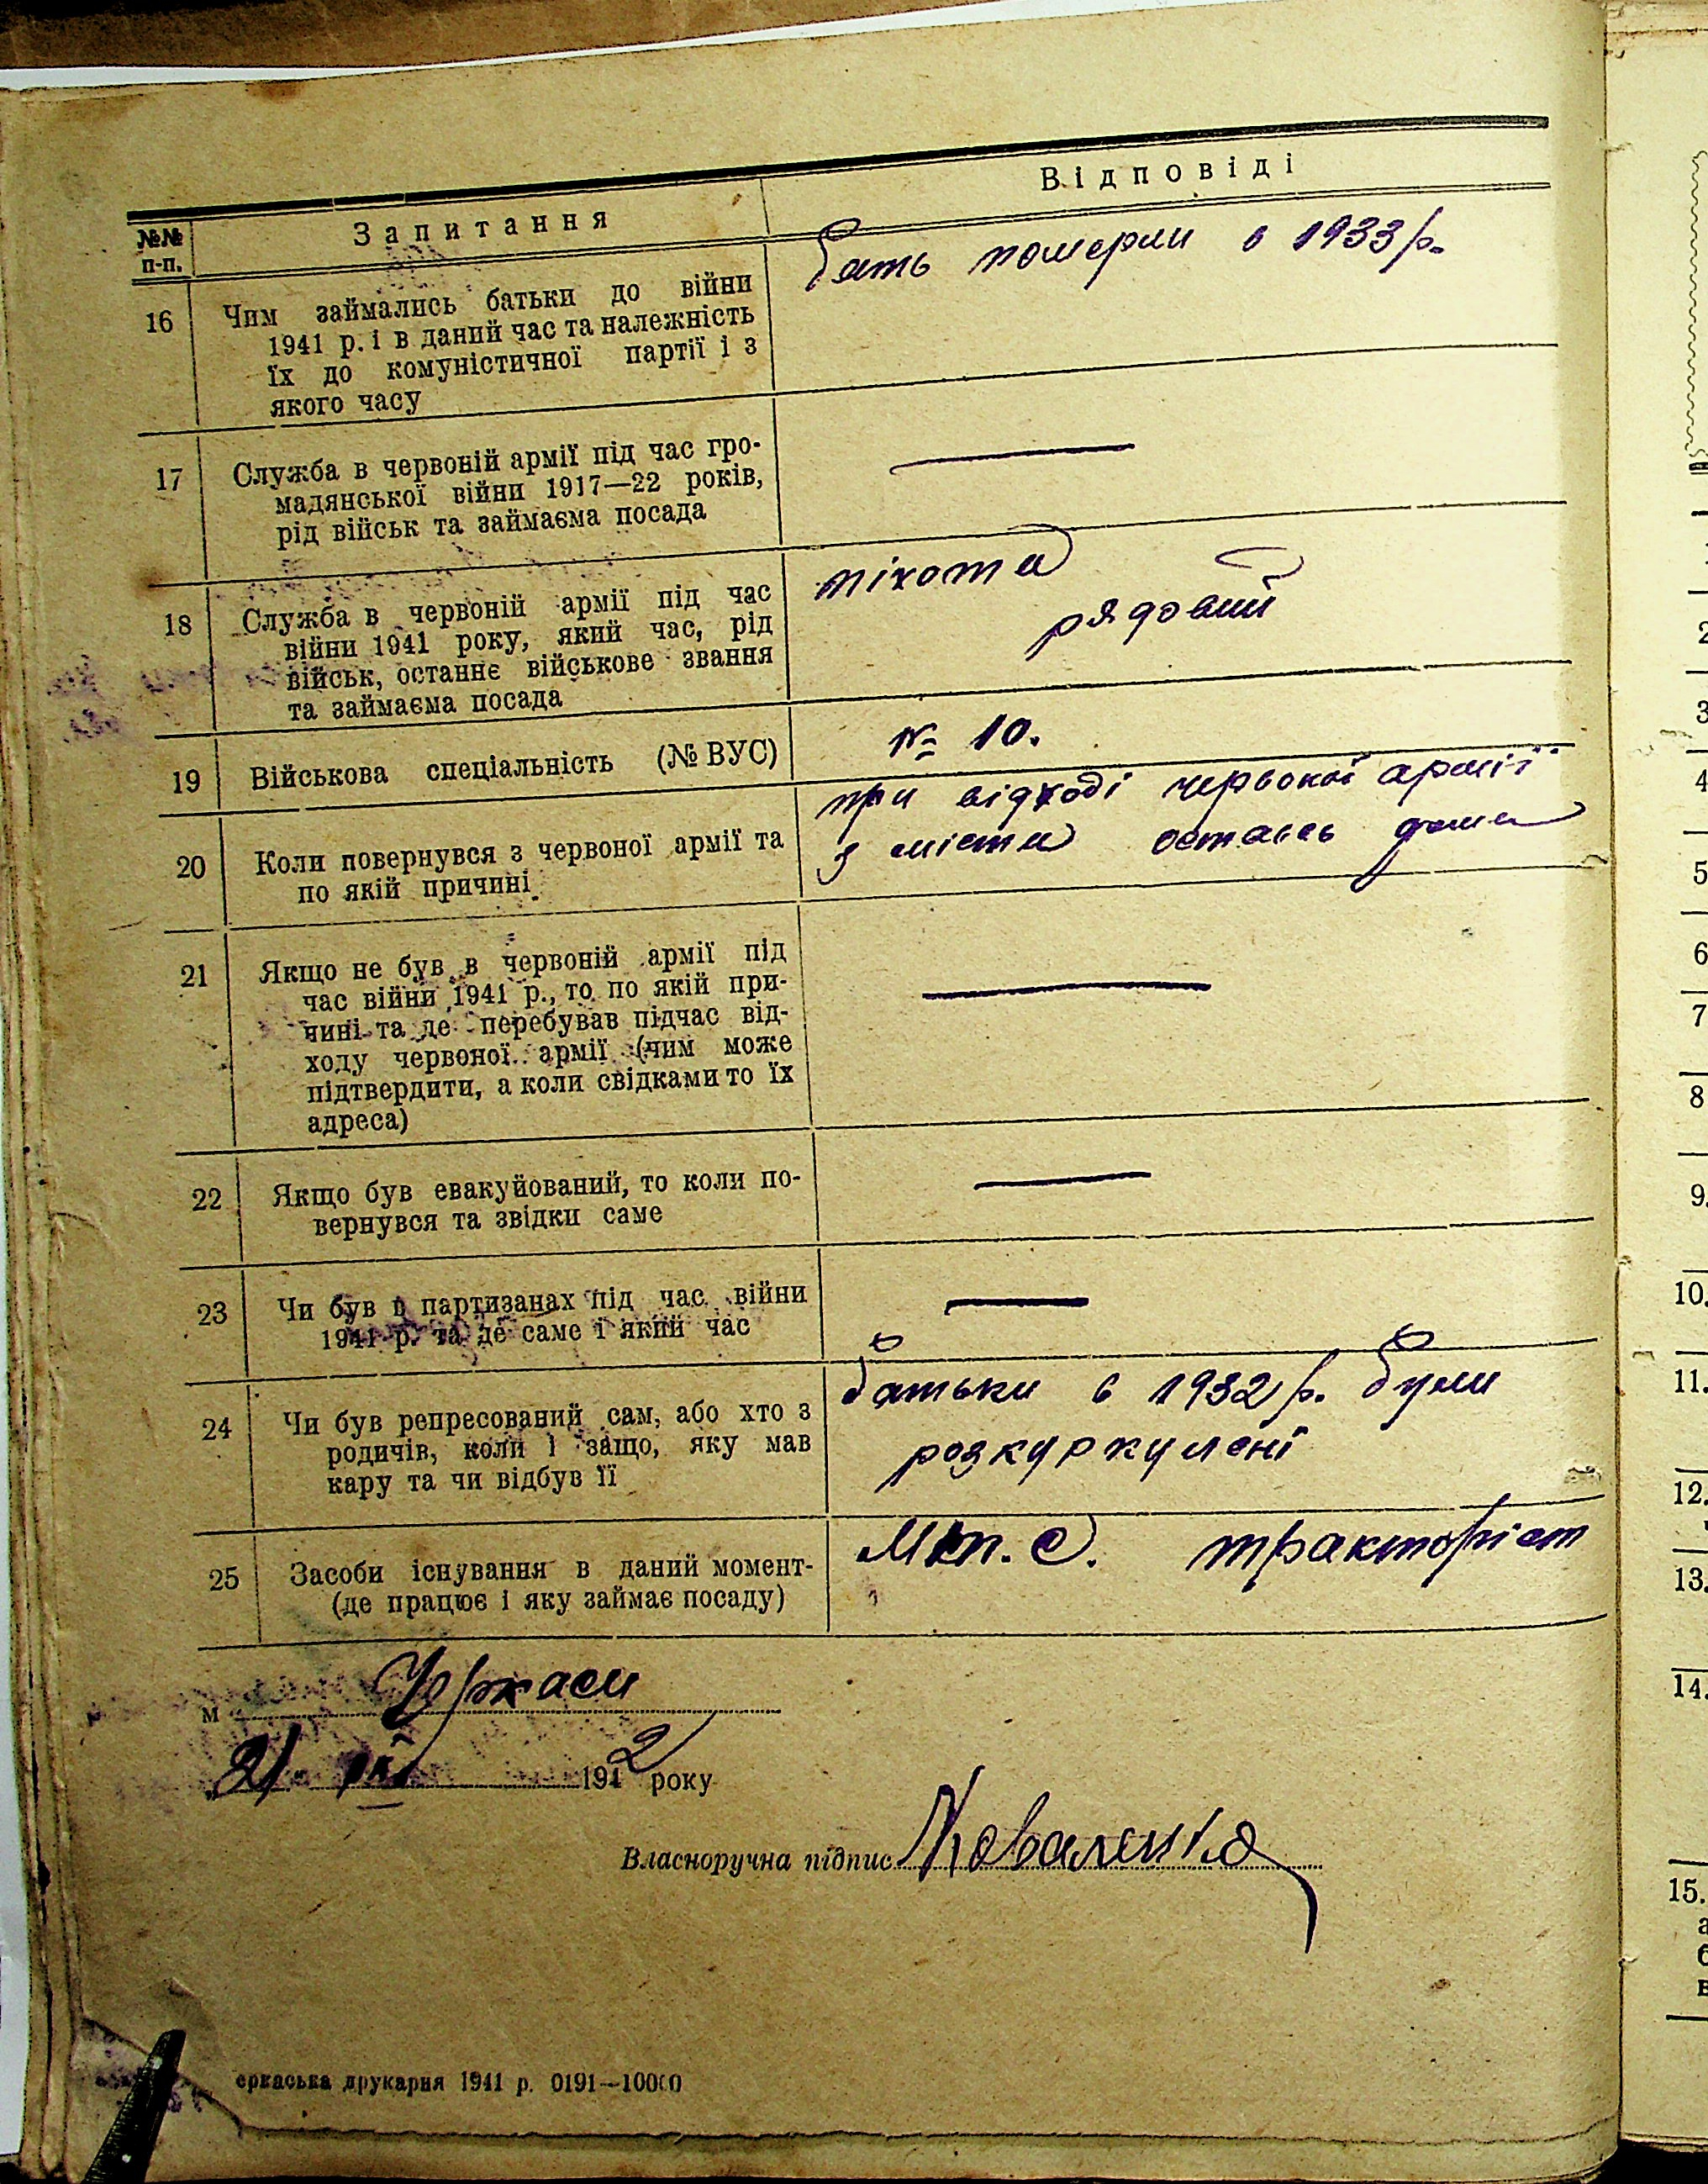 №№ п-п.
Запитання
Відповіді
16
Чим займались батьки до війни
1941 р. і в даний час та належність
їх до комуністичної партії і з
якого часу
бать померли в 1933 р.
17
Служба в червоній армії під час гро-
мадянської війни 1917—22 років,
рід військ та займаєма посада
—
18
Служба в червоній армії під час
війни 1941 року, який час, рід
військ, останнє військове звання
та займаєма посада
піхота
рядовий
19
Військова спеціальність (№ ВУС)
№ 10.
20
Коли повернувся з червоної армії та
по якій причині
при відході червоної армії
з міста остаась дома
21
Якщо не був в червоній армії під
час війни 1941 р., то по якій при-
чині та де перебував підчас від-
ходу червоної армії (чим може
підтвердити, а коли свідками то їх
адреса)
—
22
Якщо був евакуйований, то коли по-
вернувся та звідки саме
—
23
Чи був в партизанах під час війни
1941 р. та де саме і який час
—
24
Чи був репресований сам, або хто з
родичів, коли і защо, яку мав
кару та чи відбув її
батьки в 1932 р. були
розкуркулені
25
Засоби існування в даний момент-
(де працює і яку займає посаду)
М.т.с. тракторіст
м Черкаси
21. 1942 року
Власноручна підпис Коваленко
еркаська друкарня 1941 р. 0191—10000
3
4
5
6
7
8
9.
10.
11.
12.
13.
14.
15.